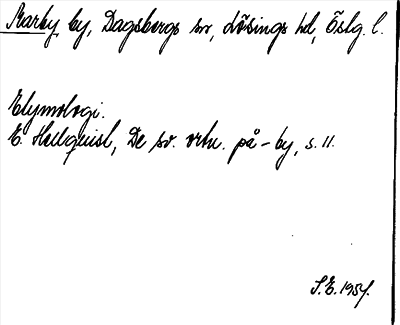 Marby by, Dagsbergs sn, Lösings hd, Östg. l.
Etymologi.
E. Hellquist, De sv. ortn. på -by, s. 11.
S.E. 1954.